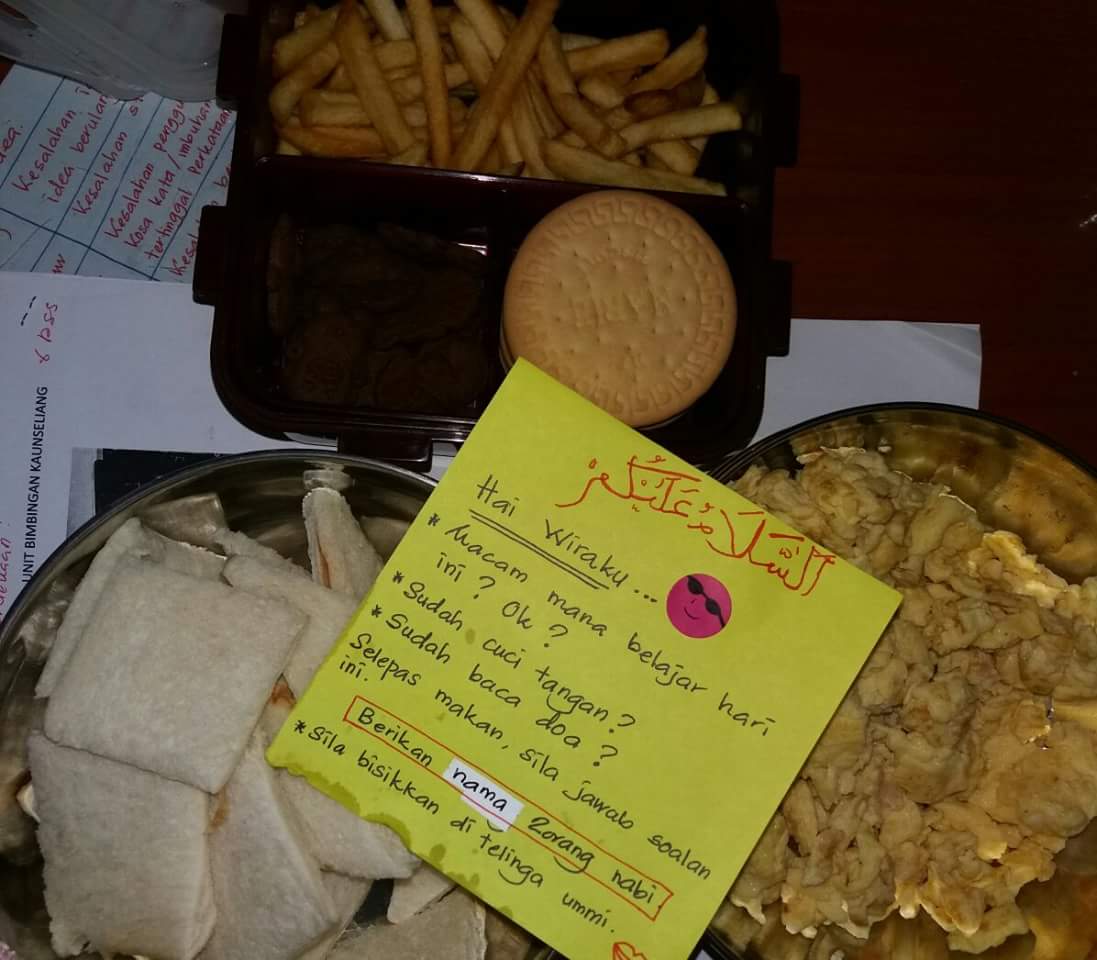 idea.
Kesalahan
idea berulan
Kesalahan
Kesalahan penggu
kosa kata/imbuhan
tertinggal perkataan
UNIT BIMBINGAN KAUNSELIANG
السَّلَامُ عَلَيْكُمْ
Hai Wiraku...
* Macam mana belajar hari
ini? Ok?
* Sudah cuci tangan?
* Sudah baca doa?
Selepas makan, sila jawab soalan
ini.
Berikan nama 2orang nabi
* Sila bisikkan di telinga ummi.